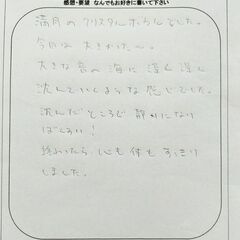 感想・要望 なんでもお好きに書いて下さい
満月のクリスタルボウルでした。
今日は大きかた〜。
大きな音の海に深く深く
沈んでいくような感じでした。
沈んだところで静かになり
ばんざい!
終わったら、心も体もすっきり
しました。